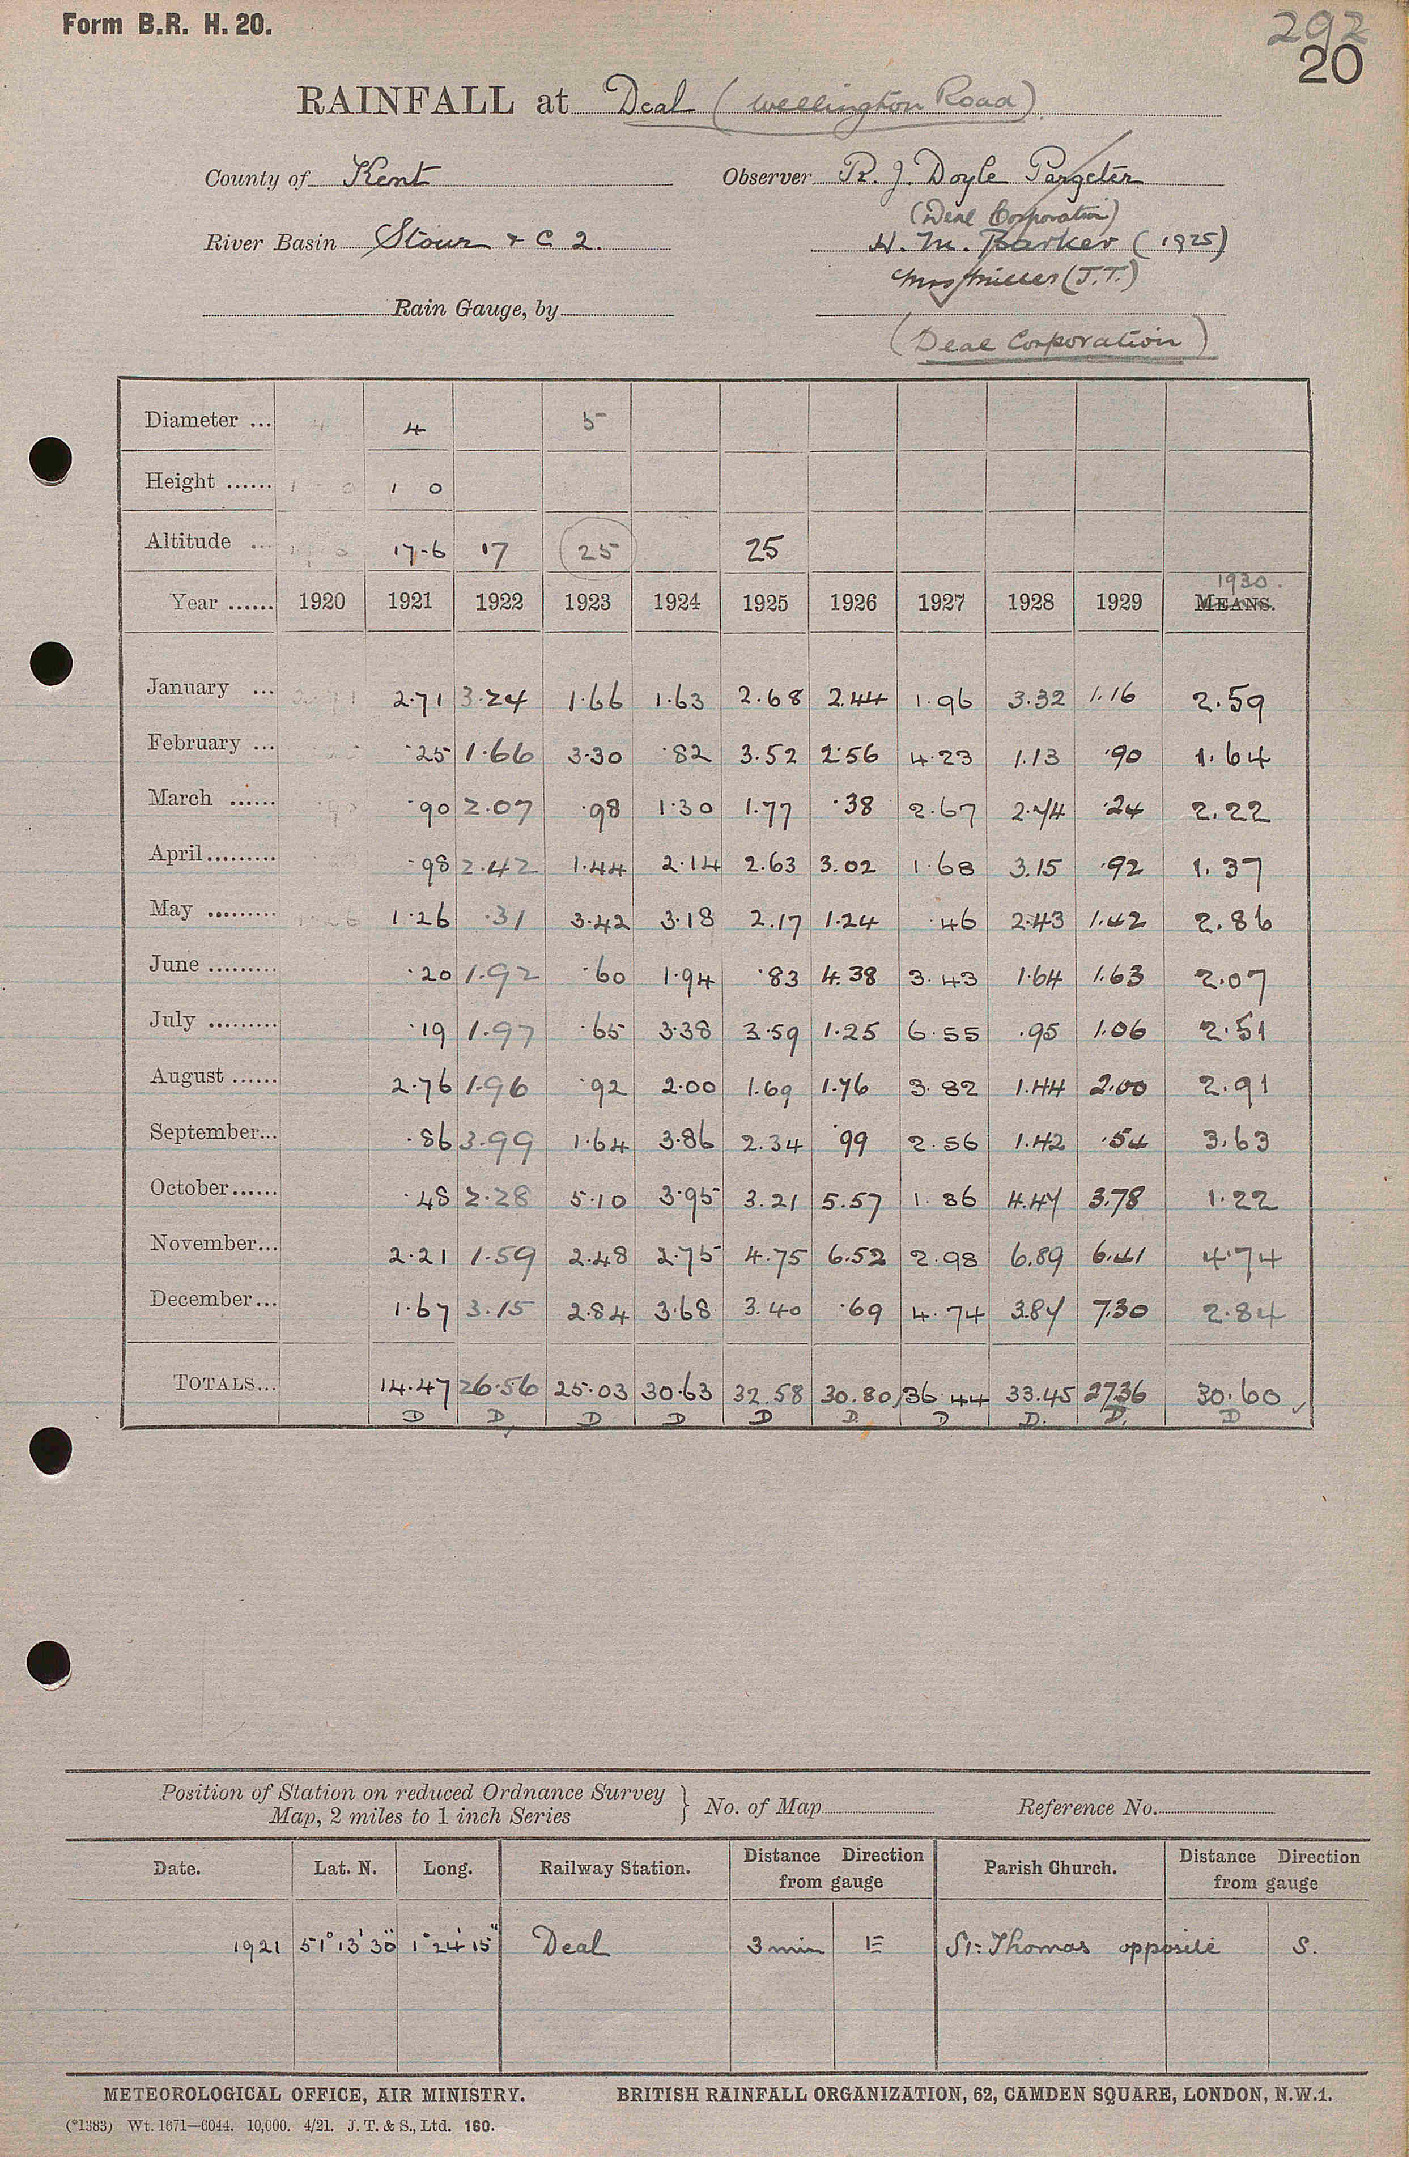 Form B.R. H. 20.
292
20
RAINFALL at Deal (Wellington Road)
County of Kent Observer R. J. Doyle Pargeter
(Deal Corporation)
River Basin Stour & C 2. H. M. Barker (1925)
Mrs Miller (J.T.)
Rain Gauge, by
(Deal Corporation)
Diameter ... 4 5
Height ...... 1 0 1 0
Altitude ... 17-6 17 25 25
1930.
Year ...... 1920 1921 1922 1923 1924 1925 1926 1927 1928 1929 MEANS.
January ... 2.71 3.24 1.66 1.63 2.68 2.44 1.96 3.32 1.16 2.59
February ... .25 1.66 3.30 .82 3.52 2.56 4.23 1.13 .90 1.64
March ...... .90 2.07 .98 1.30 1.77 .38 2.67 2.74 .24 2.22
April ......... .98 2.42 1.44 2.14 2.63 3.02 1.68 3.15 .92 1.37
May ......... 1.26 .31 3.42 3.18 2.17 1.24 .46 2.43 1.42 2.86
June ......... .20 1.92 .60 1.94 .83 4.38 3.43 1.64 1.63 2.07
July ......... .19 1.97 .65 3.38 3.59 1.25 6.55 .95 1.06 2.51
August ...... 2.76 1.96 .92 2.00 1.69 1.76 3.82 1.44 2.00 2.91
September... .86 3.99 1.64 3.86 2.34 .99 2.56 1.42 .54 3.63
October ...... .48 2.28 5.10 3.95 3.21 5.57 1.36 4.47 3.78 1.22
November... 2.21 1.59 2.48 2.75 4.75 6.52 2.98 6.89 6.41 4.74
December ... 1.67 3.15 2.84 3.68 3.40 .69 4.74 3.87 7.30 2.84
TOTALS... 14.47 26.56 25.03 30.63 32.58 30.80 36.44 33.45 27.36 30.60 ✓
D D D D D D D D. D. D
Position of Station on reduced Ordnance Survey
Map, 2 miles to 1 inch Series } No. of Map Reference No.
Date. Lat. N. Long. Railway Station. Distance Direction from gauge Parish Church. Distance Direction from gauge
1921 51° 13' 30" 1° 24' 15" Deal 3 min E St. Thomas opposite S.
METEOROLOGICAL OFFICE, AIR MINISTRY. BRITISH RAINFALL ORGANIZATION, 62, CAMDEN SQUARE, LONDON, N.W.1.
(*1383) Wt. 1671—6044. 10,000. 4/21. J. T. & S., Ltd. 160.